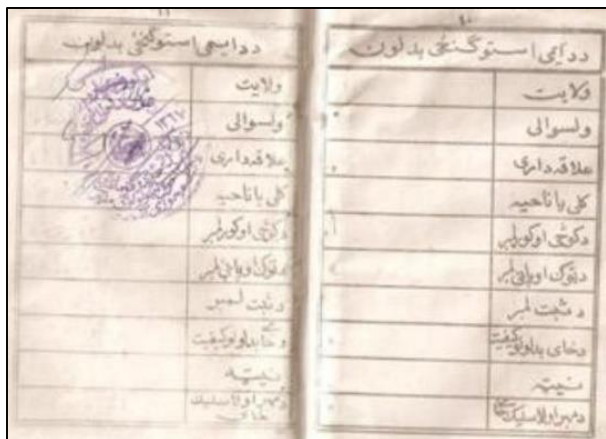 ١٠
د دایمی استوگنځی بدلون
ولایت
ولسوالی
علاقه داری
کلی یا ناحیه
دکوڅی اوکورلمبر
دټوک او پاڼی لمبر
د ثبت لمبر
دځای بدلولوکیفیت
نیټه
دمهر او لاسلیک ځای
١١
د دایمی استوگنځی بدلون
ولایت
ولسوالی
علاقه داری
کلی یا ناحیه
دکوڅی اوکورلمبر
دټوک او پاڼی لمبر
د ثبت لمبر
دځای بدلولوکیفیت
نیټه
دمهر او لاسلیک
ځای